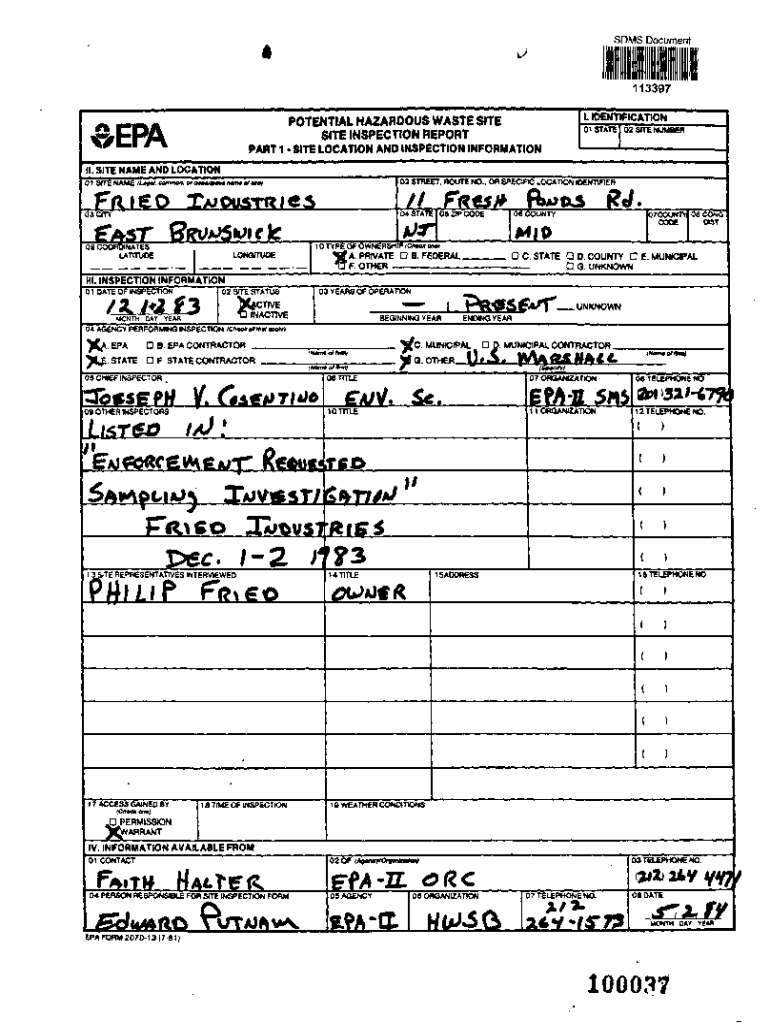 SDMS Document
113397
EPA
POTENTIAL HAZARDOUS WASTE SITE
SITE INSPECTION REPORT
PART 1 - SITE LOCATION AND INSPECTION INFORMATION
I. IDENTIFICATION
01 STATE 02 SITE NUMBER
II. SITE NAME AND LOCATION
01 SITE NAME (Legal, common, or descriptive name of site) 02 STREET, ROUTE NO., OR SPECIFIC LOCATION IDENTIFIER
FRIED INDUSTRIES 11 FRESH PONDS Rd.
03 CITY 04 STATE 05 ZIP CODE 06 COUNTY 07 COUNTY CODE 08 CONG DIST
EAST BRUNSWICK NJ MID
09 COORDINATES
LATITUDE LONGITUDE
10 TYPE OF OWNERSHIP (Check one)
A. PRIVATE B. FEDERAL C. STATE D. COUNTY E. MUNICIPAL
F. OTHER G. UNKNOWN
III. INSPECTION INFORMATION
01 DATE OF INSPECTION 02 SITE STATUS 03 YEARS OF OPERATION
12 1-2 83 ACTIVE — PRESENT UNKNOWN
MONTH DAY YEAR INACTIVE BEGINNING YEAR ENDING YEAR
04 AGENCY PERFORMING INSPECTION (Check all that apply)
A. EPA B. EPA CONTRACTOR (Name of firm) C. MUNICIPAL D. MUNICIPAL CONTRACTOR (Name of firm)
E. STATE F. STATE CONTRACTOR (Name of firm) G. OTHER U.S. MARSHALL (Specify)
05 CHIEF INSPECTOR 06 TITLE 07 ORGANIZATION 08 TELEPHONE NO
JOESEPH V. COSENTINO ENV. Sc. EPA-II SMS 201 321-6790
09 OTHER INSPECTORS 10 TITLE 11 ORGANIZATION 12 TELEPHONE NO.
LISTED IN: ( )
"ENFORCEMENT REQUESTED ( )
SAMPLING INVESTIGATION" ( )
FRIED INDUSTRIES ( )
DEC. 1-2 1983 ( )
13 SITE REPRESENTATIVES INTERVIEWED 14 TITLE 15 ADDRESS 16 TELEPHONE NO
PHILIP FRIED OWNER ( )
( )
( )
( )
( )
( )
17 ACCESS GAINED BY 18 TIME OF INSPECTION 19 WEATHER CONDITIONS
(Check one)
PERMISSION
WARRANT
IV. INFORMATION AVAILABLE FROM
01 CONTACT 02 OF (Agency/Organization) 03 TELEPHONE NO.
FAITH HALTER EPA-II ORC (212) 264 4471
04 PERSON RESPONSIBLE FOR SITE INSPECTION FORM 05 AGENCY 06 ORGANIZATION 07 TELEPHONE NO. 08 DATE
EDWARD PUTNAM EPA-II HWSB 212 264-1573 5 2 84
MONTH DAY YEAR
EPA FORM 2070-13 (7-81)
100037